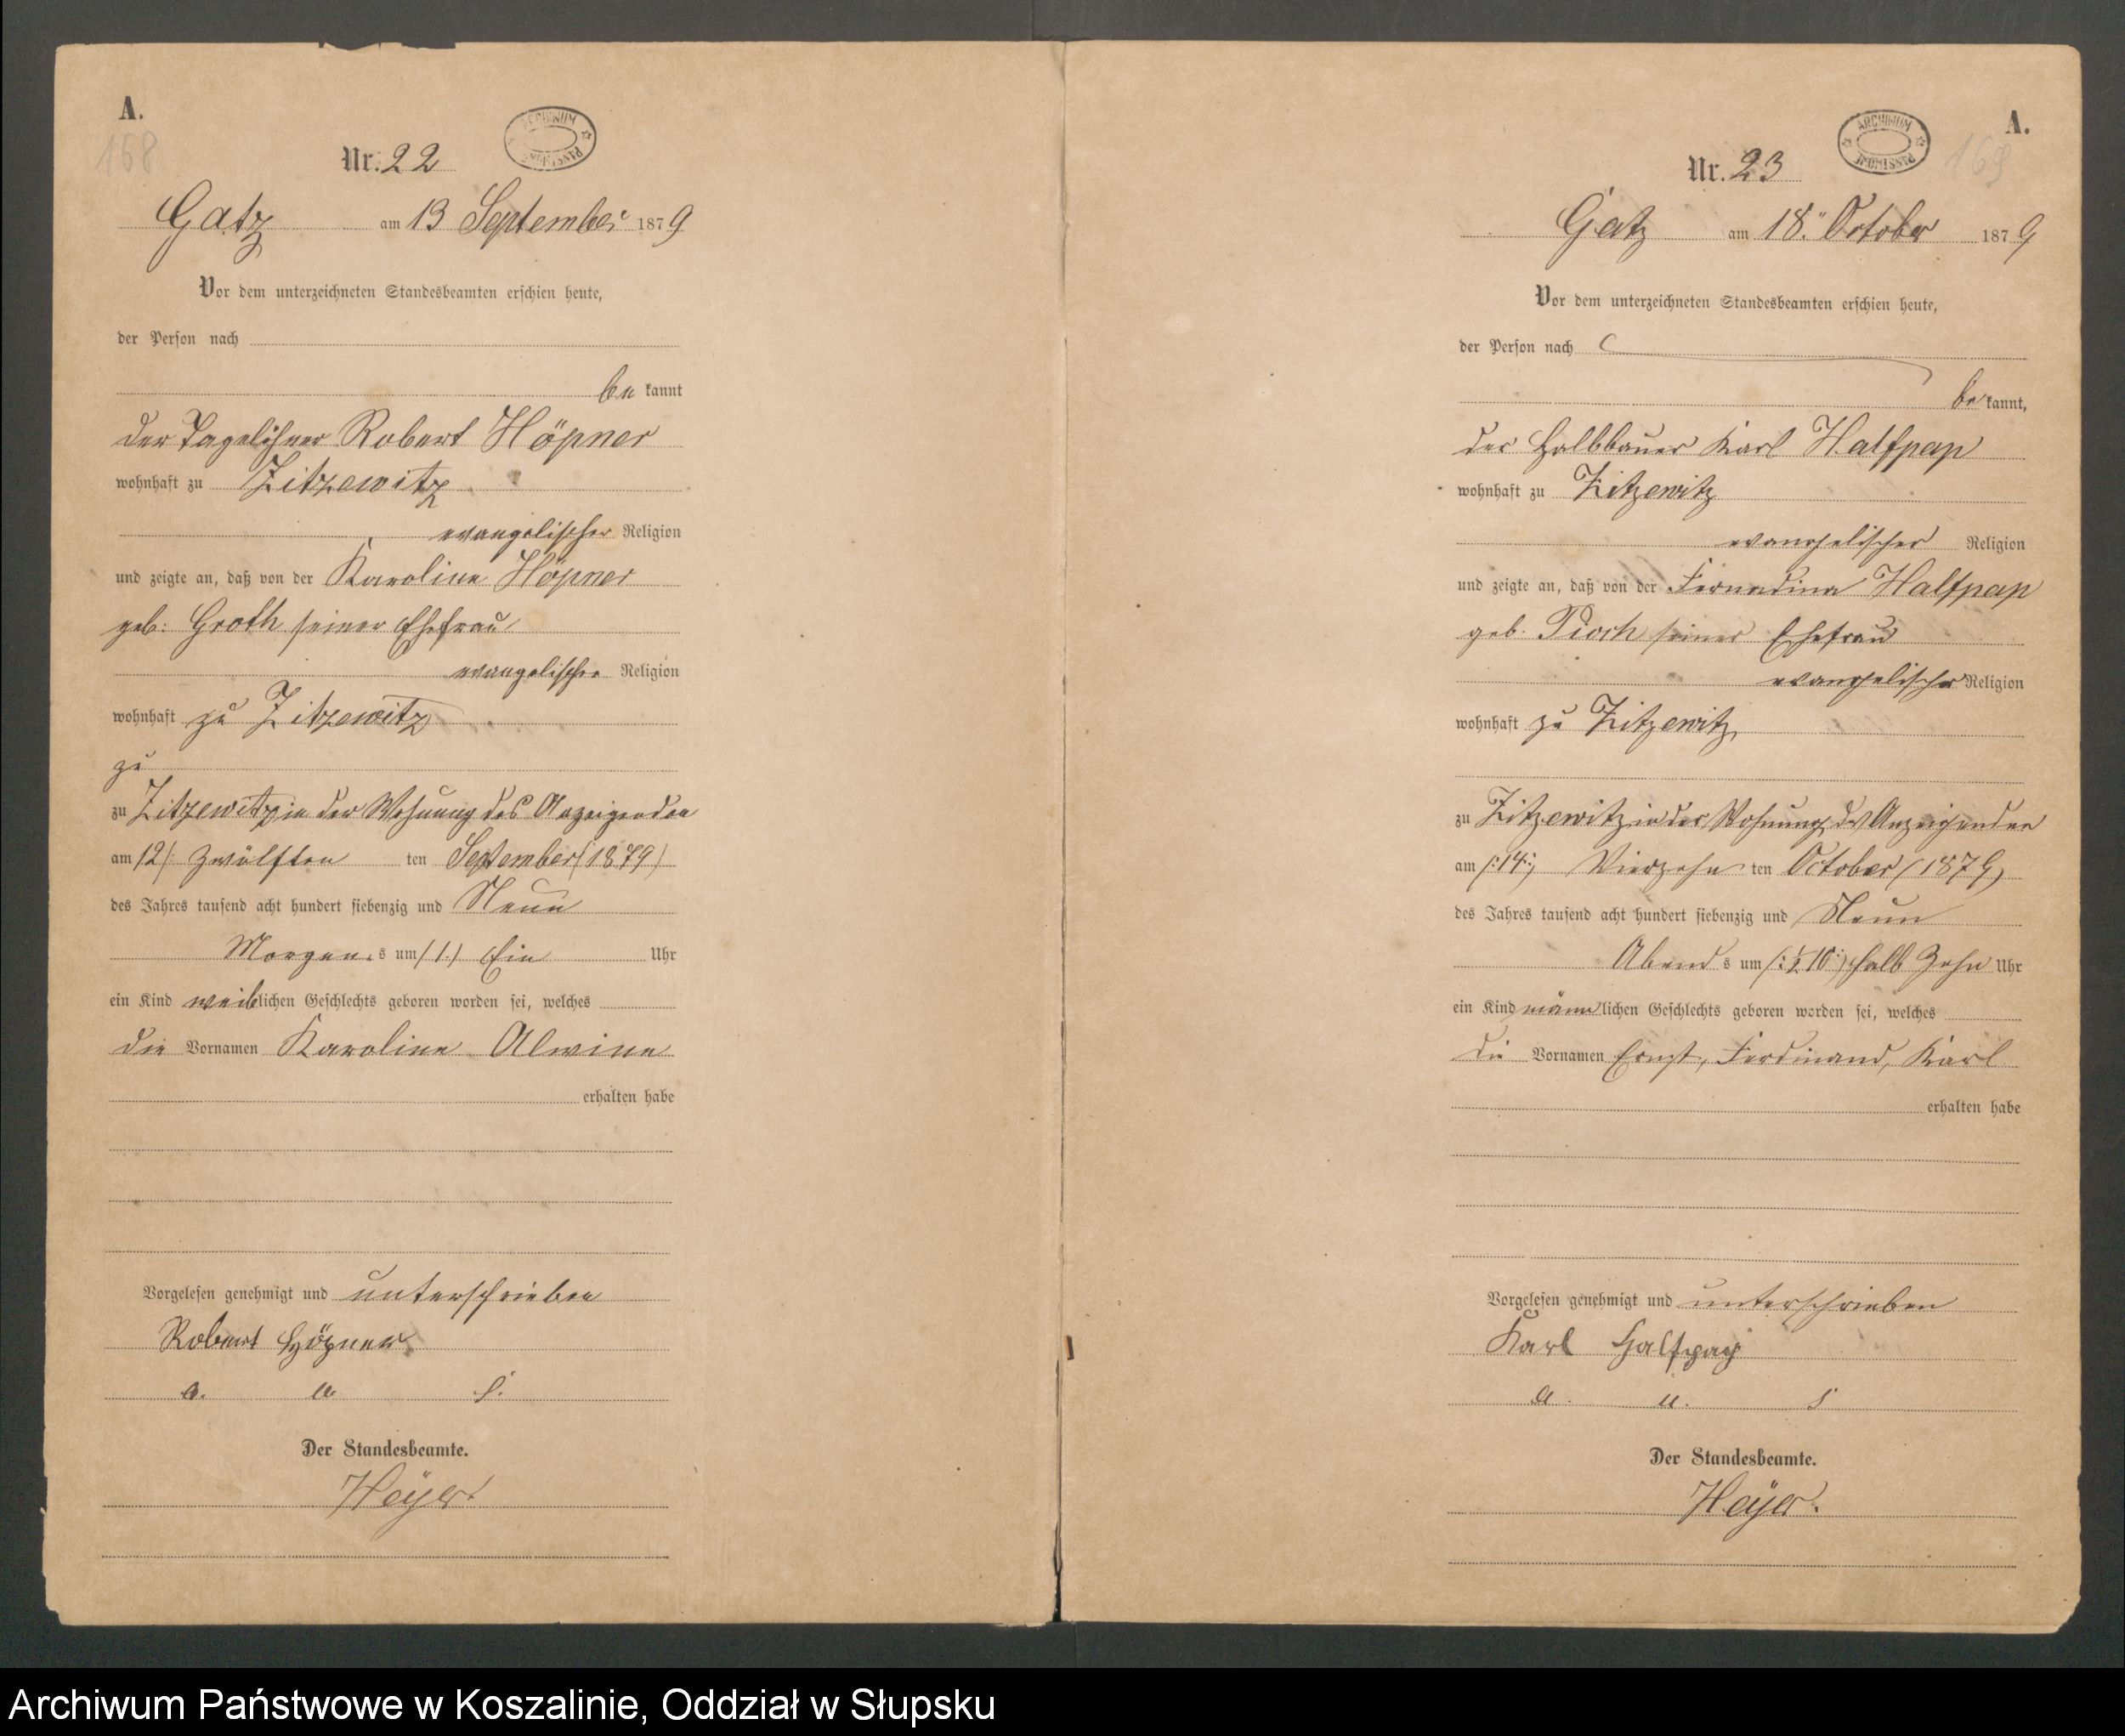 A.
168
Nr. 22
ARCHIWUM PAŃSTWOWE
Gatz am 13 September 1879
Vor dem unterzeichneten Standesbeamten erschien heute,
der Person nach
be kannt
der Tagelöhner Robert Höpner
wohnhaft zu Zitzewitz
evangelischer Religion
und zeigte an, daß von der Karoline Höpner
geb: Groth seiner Ehefrau
evangelischer Religion
wohnhaft zu Zitzewitz
zu
zu Zitzewitz in der Wohnung des Anzeigenden
am /12/ zwölften ten September (1879)
des Jahres tausend acht hundert siebenzig und Neun
Morgens um /1./ Ein Uhr
ein Kind weiblichen Geschlechts geboren worden sei, welches
die Vornamen Karoline Alwine
erhalten habe
Vorgelesen genehmigt und unterschrieben
Robert Höpner
a. u. s.
Der Standesbeamte.
Heyer
A.
169
Nr. 23
ARCHIWUM PAŃSTWOWE
Gatz am 18. October 1879
Vor dem unterzeichneten Standesbeamten erschien heute,
der Person nach
be kannt,
der Halbbauer Karl Halfpap
wohnhaft zu Zitzewitz
evangelischer Religion
und zeigte an, daß von der Halfpap
geb. Pioch seiner Ehefrau
evangelischer Religion
wohnhaft zu Zitzewitz,
zu Zitzewitz in der Wohnung des Anzeigenden
am /:14:/ Vierzehn ten October (1879)
des Jahres tausend acht hundert siebenzig und Neun
Abends um /:½10:/ halb Zehn Uhr
ein Kind männlichen Geschlechts geboren worden sei, welches
die Vornamen Ernst, Ferdinand, Karl
erhalten habe
Vorgelesen genehmigt und unterschrieben
Karl Halfpap
a. u. s
Der Standesbeamte.
Heyer.
Archiwum Państwowe w Koszalinie, Oddział w Słupsku